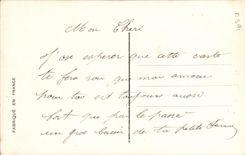 Mon Cheri
J'ose esperer que cette carte
te fera voir que mon amour
pour toi est toujours aussi
fort que par le passé
un gros baiser de ta petite
FABRIQUÉ EN FRANCE